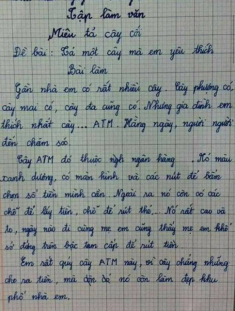 Tập làm văn
Miêu tả cây cối
Đề bài: Tả một cây mà em yêu thích
Bài làm
Gần nhà em có rất nhiều cây. Cây phượng có,
cây mai có, cây đa cũng có. Nhưng gia đình em
thích nhất cây... ATM. Hàng ngày, người người
đến chăm sóc.
Cây ATM đó thuộc ngân hàng. Nó màu
xanh dương, có màn hình và các nút để bấm
chọn số tiền mình cần. Ngoài ra nó còn có các
chỗ để lấy tiền, chỗ để rút thẻ. Nó rất cao và
to, ngày nào đi cùng mẹ em cũng thấy mẹ em
sử dụng trên bậc tam cấp để rút tiền.
Em rất quý cây ATM này, vì cây chẳng những
cho ra tiền, mà còn nó còn làm đẹp khu
phố nhà em.